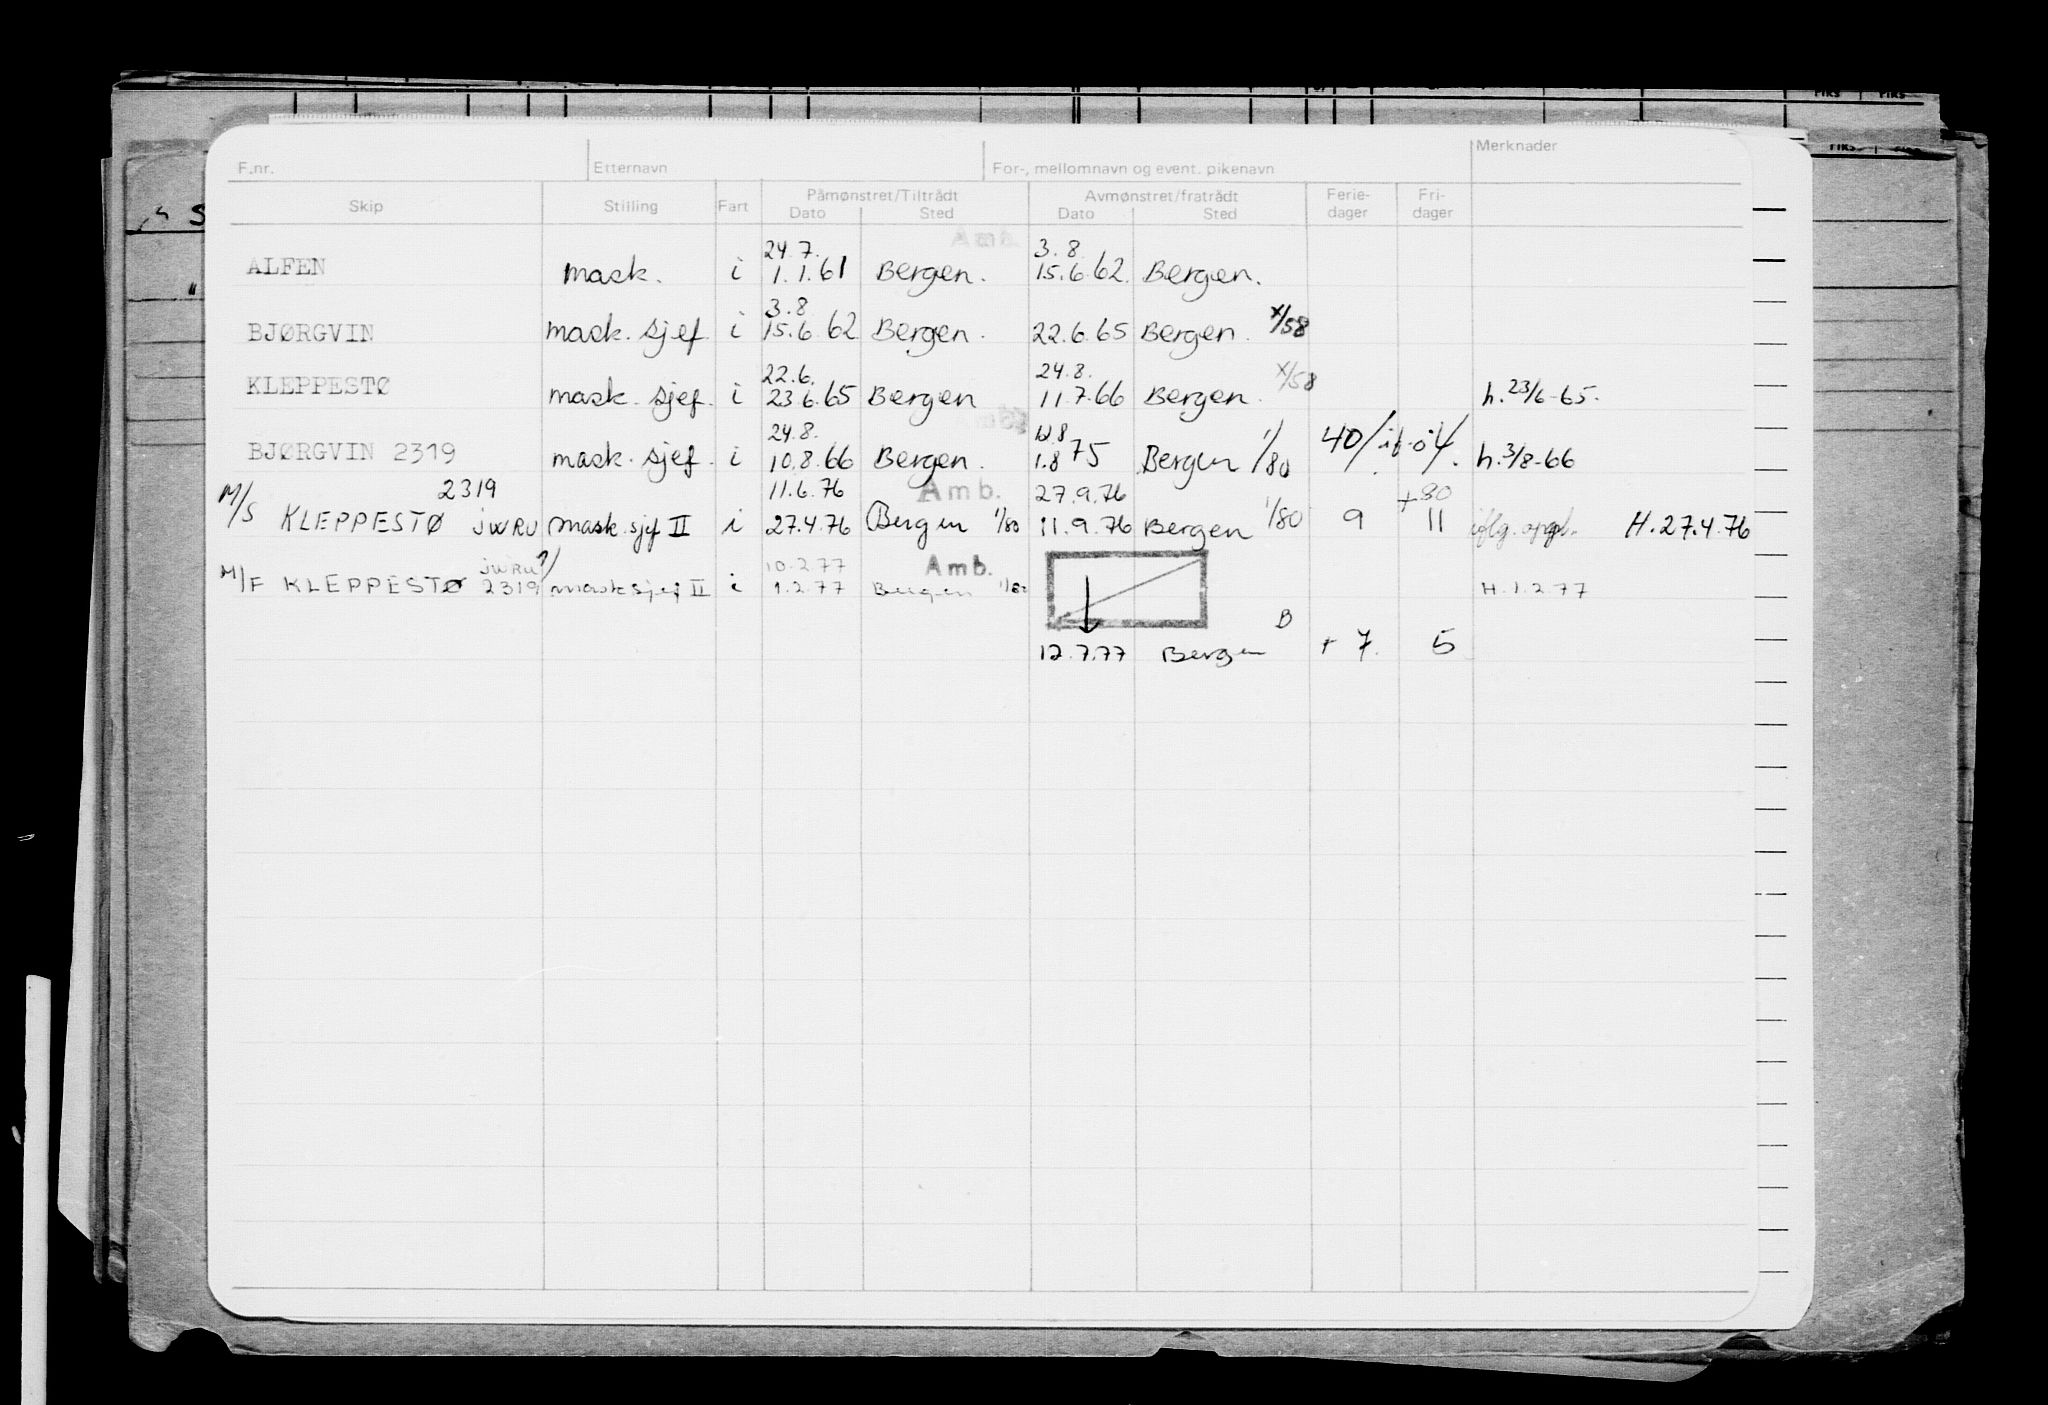 Merknader
F.nr. Etternavn For-, mellomnavn og event. pikenavn
Skip Stilling Fart Påmønstret/Tiltrådt Avmønstret/fratrådt Ferie- Fri-
Dato Sted Dato Sted dager dager
Amb.
24.7. 3.8
ALFEN mask. i 1.1.61 Bergen. 15.6.62. Bergen.
3.8
BJØRGVIN mask. sjef. i 15.6.62 Bergen. 22.6.65 Bergen. x/58
22.6. 24.8.
KLEPPESTØ mask. sjef. i 23.6.65 Bergen 11.7.66 Bergen. x/58 h. 23/6-65.
24.8. 12.8
BJØRGVIN 2319 mask. sjef. i 10.8.66 Bergen. 1.8 75 Bergen 1/80 40/ h. 3/8-66
2319 11.6.76 Amb. 27.9.76 +80
M/S KLEPPESTØ JWRU mask. sjef II i 27.4.76 Bergen 1/80 11.9.76 Bergen 1/80 9 11 iflg. H. 27.4.76
JWRU ?/ 10.2.77 Amb.
M/F KLEPPESTØ 2319 mask sjef II i 1.2.77 Bergen 1/80 H. 1.2.77
B
12.7.77 Bergen + 7. 5